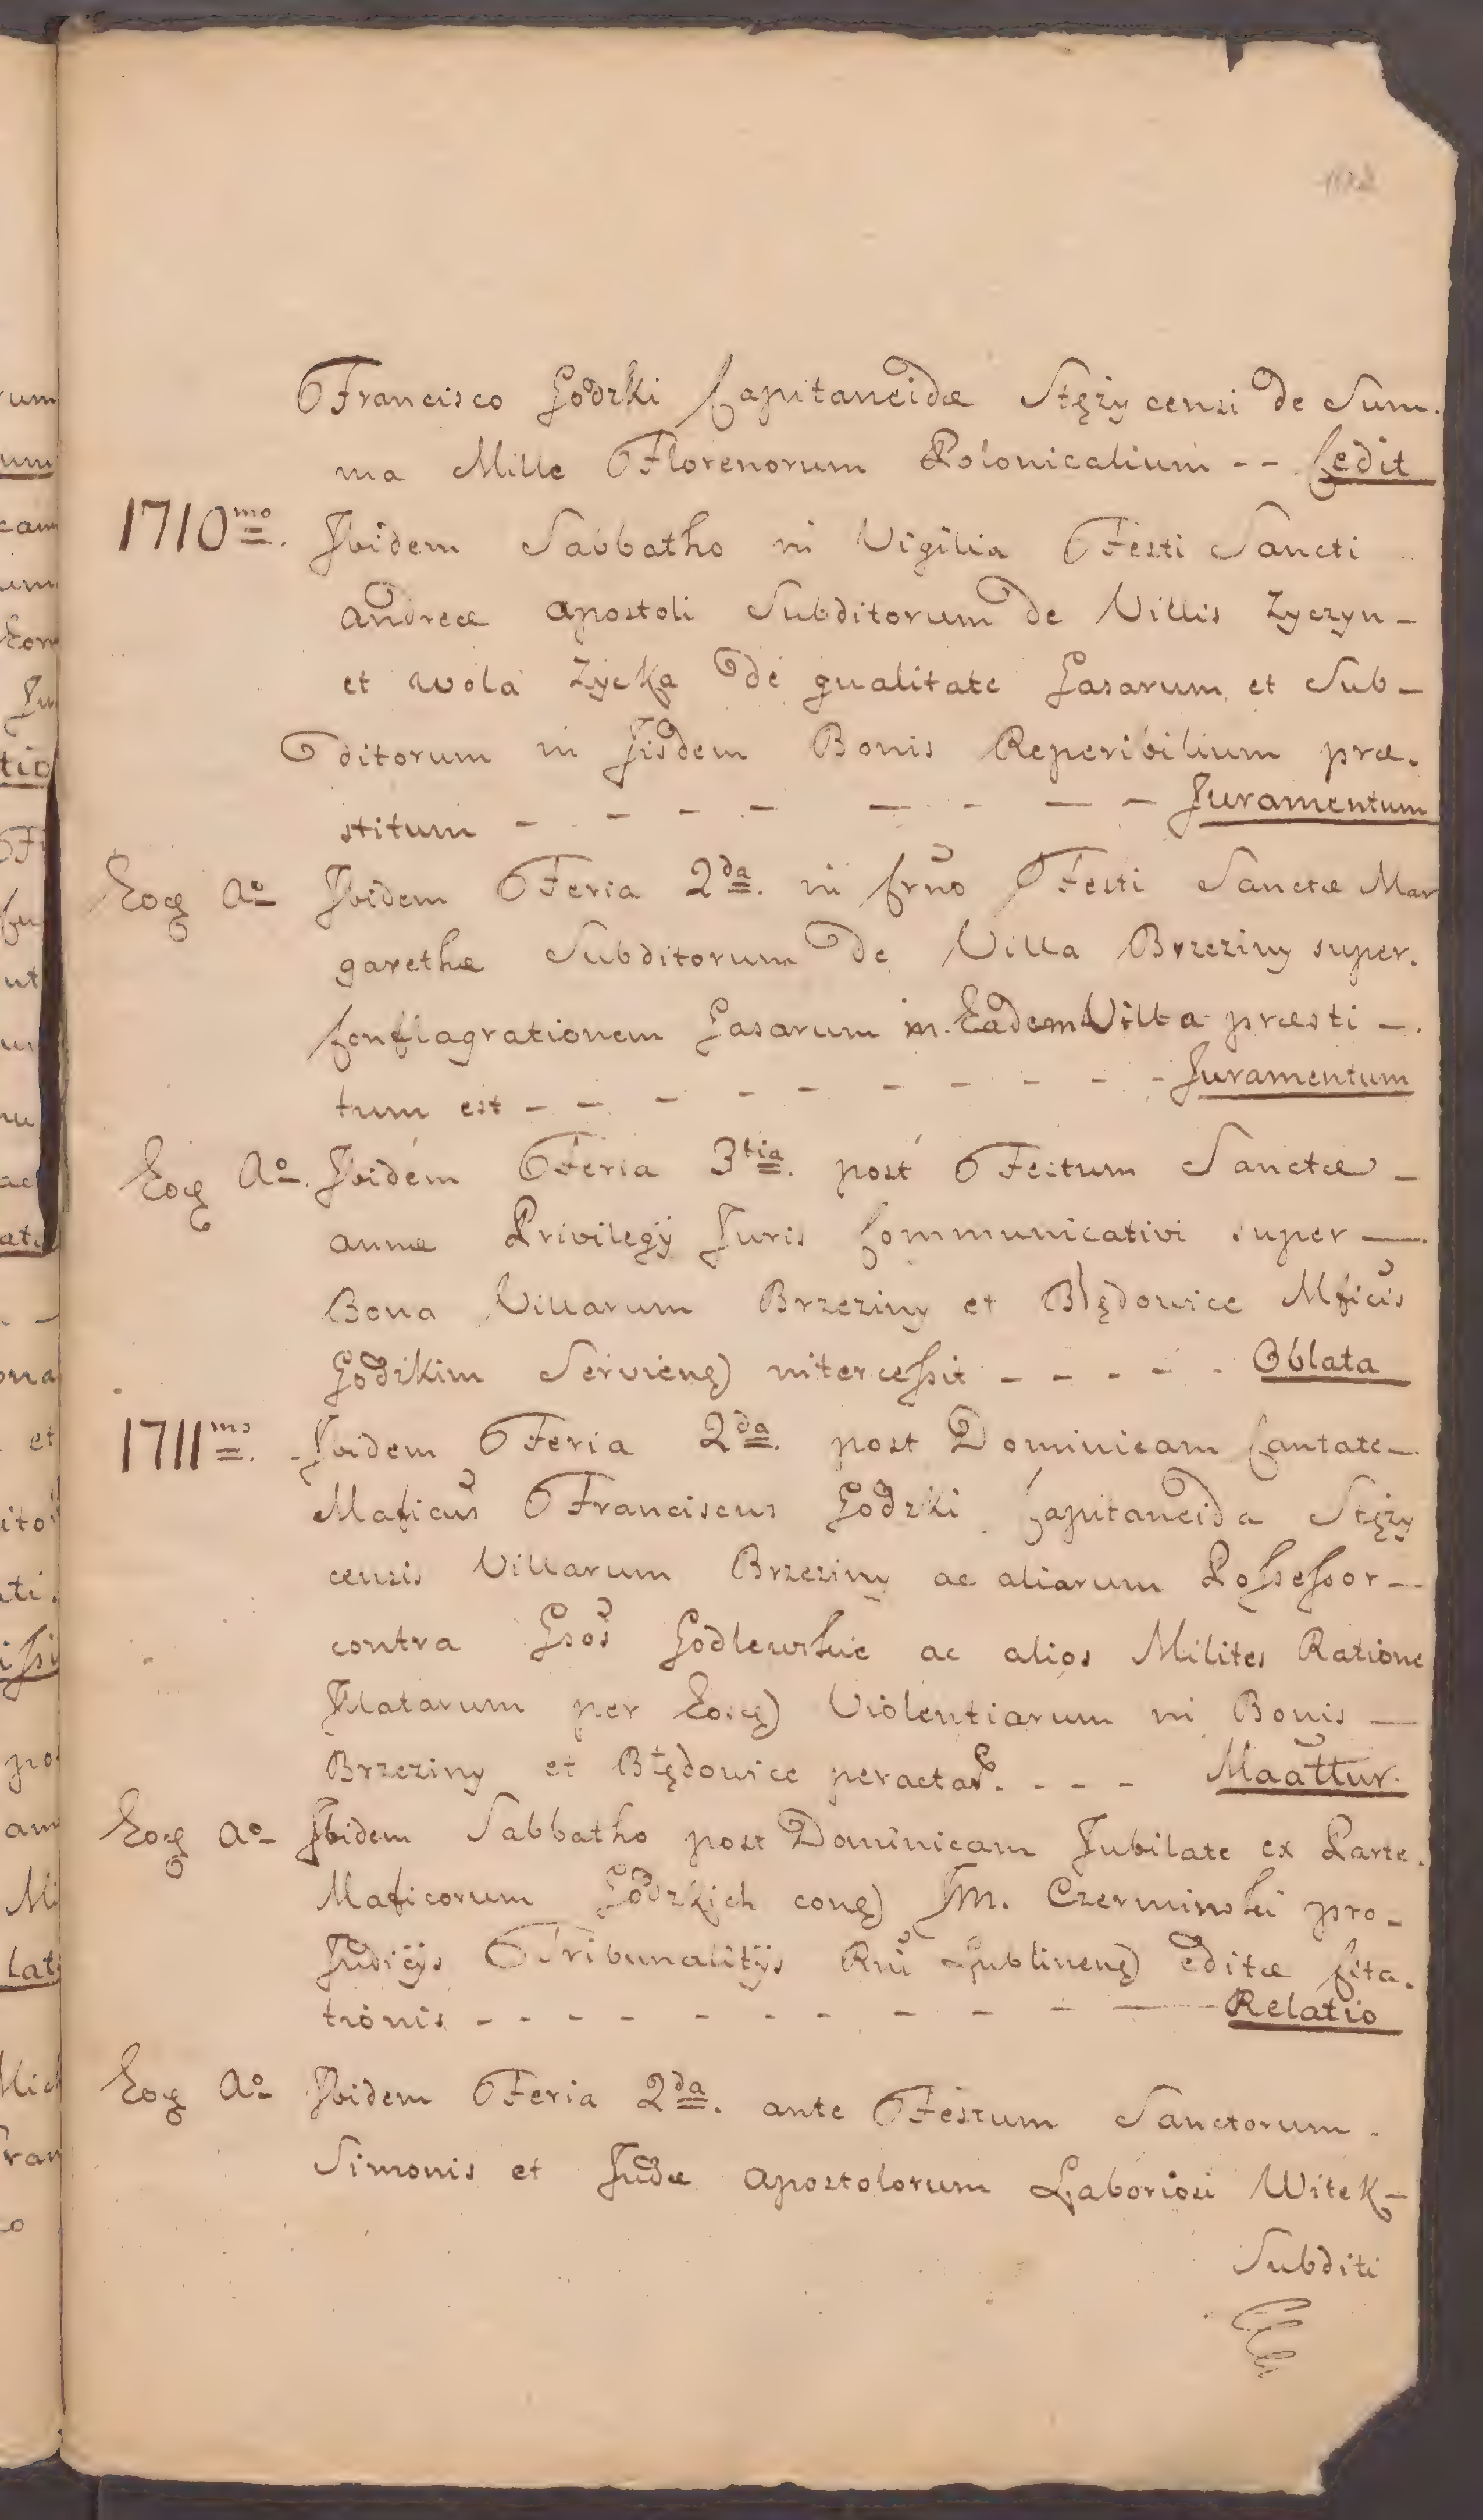 Francisco Godzki Capitaneidæ Stężycensi de Sum.
ma Mille Florenorum Polonicalium -- Cedit
1710mo. Ibidem Sabbatho in Vigilia Festi Sancti
Andreæ Apostoli Subditorum de Villis Zyczyn -
et Wola Zycka de qualitate Casarum et Sub -
ditorum in Iisdem Bonis Reperibilium præ.
stitum - - - - - - - - Juramentum
Eoq Ao Ibidem Feria 2da. in Crño Festi Sanctæ Mar
garethæ Subditorum de Villa Brzeziny super.
Conflagrationem Casarum in Eadem Villa præsti -.
tum est - - - - - - - - - Juramentum
Eoq Ao. Ibidem Feria 3tia. post Festum Sanctæ -
Annæ Privilegÿ Juris Communicativi super -.
Bona Villarum Brzeziny et Błędowice Mficis
Godzkim Servieng) intercessit - - - - - Oblata
1711mo. Ibidem Feria 2da. post Dominicam Cantate -
Maficus Franciscus Godzki Capitaneida Stęży
censis Villarum Brzeziny ac aliarum Possessor --
contra Gsos Godlewskie ac alios Milites Ratione
Illatarum per Eosq) Violentiarum in Bonis -
Brzeziny et Błędowice peractar. - - - Maattur.
Eoq Ao Ibidem Sabbatho post Dominicam Jubilate ex Parte.
Maficorum Godzkich cong) Jm. Czerminski pro -
Judicÿs Tribunalitÿs Rni Lublineng) Editæ Cita.
tionis - - - - - - - - - - Relatio
Eoq Ao Ibidem Feria 2da. ante Festum Sanctorum.
Simonis et Judæ Apostolorum Laboriosi Witek -
Subditi